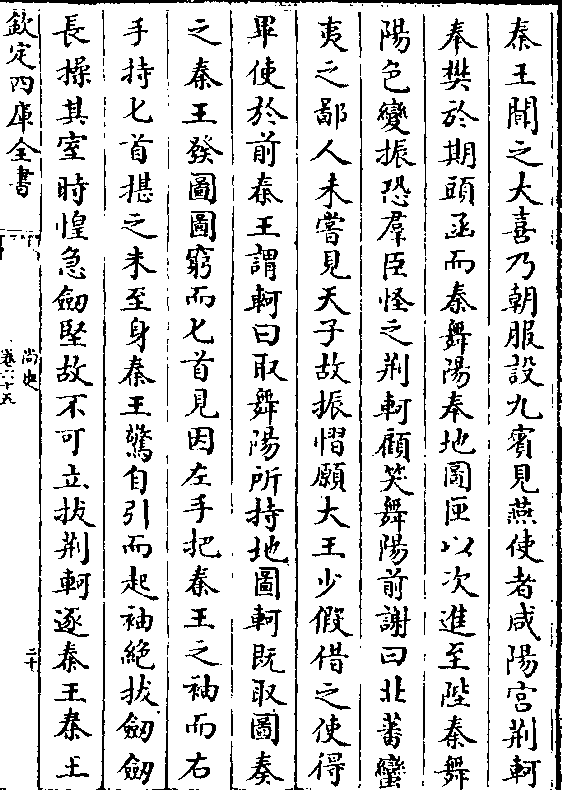 秦王聞之大喜乃朝服設九賓見燕使者咸陽宫荆軻
奉樊於期頭函而秦舞陽奉地圖匣以次進至陛秦舞
陽色變振恐羣臣怪之荆軻顧笑舞陽前謝曰北蕃蠻
夷之鄙人未嘗見天子故振慴願大王少假借之使得
畢使於前秦王謂軻曰取舞陽所持地圖軻既取圖奏
之秦王發圖圖窮而匕首見因左手把秦王之袖而右
手持匕首揕之未至身秦王驚自引而起袖絶拔劒劒
長操其室時惶急劒堅故不可立拔荆軻逐秦王秦王
欽定四庫全書
尚史
卷六十五
二十